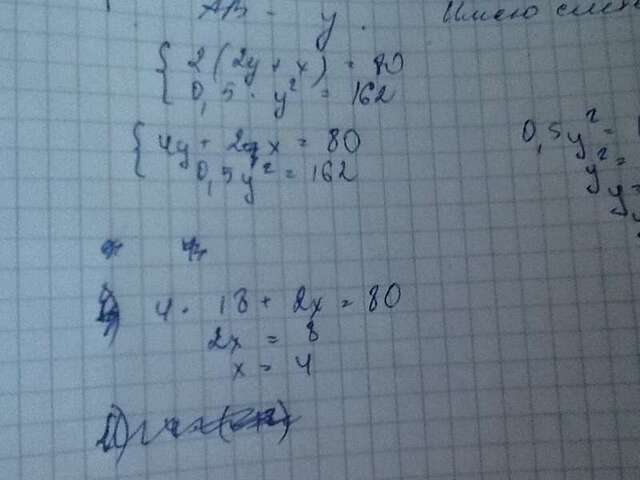 AB - y. Имею
{ 2(2y + x) = 80
0,5 · y² = 162
{ 4y + 2x = 80
0,5y² = 162
0,5y² =
y² =
y =
y
1) 4 · 18 + 2x = 80
2x = 8
x = 4
2)